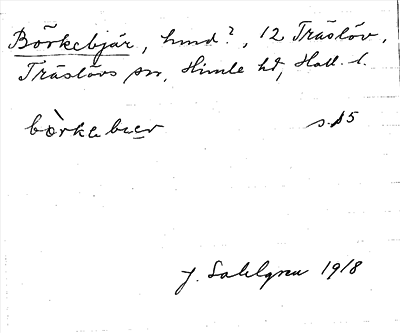 Börkebjär, hund?, 12 Träslöv,
Träslövs sn, Himle hd, Hall. l.
bòrkebier s. 15
J. Sahlgren 1918